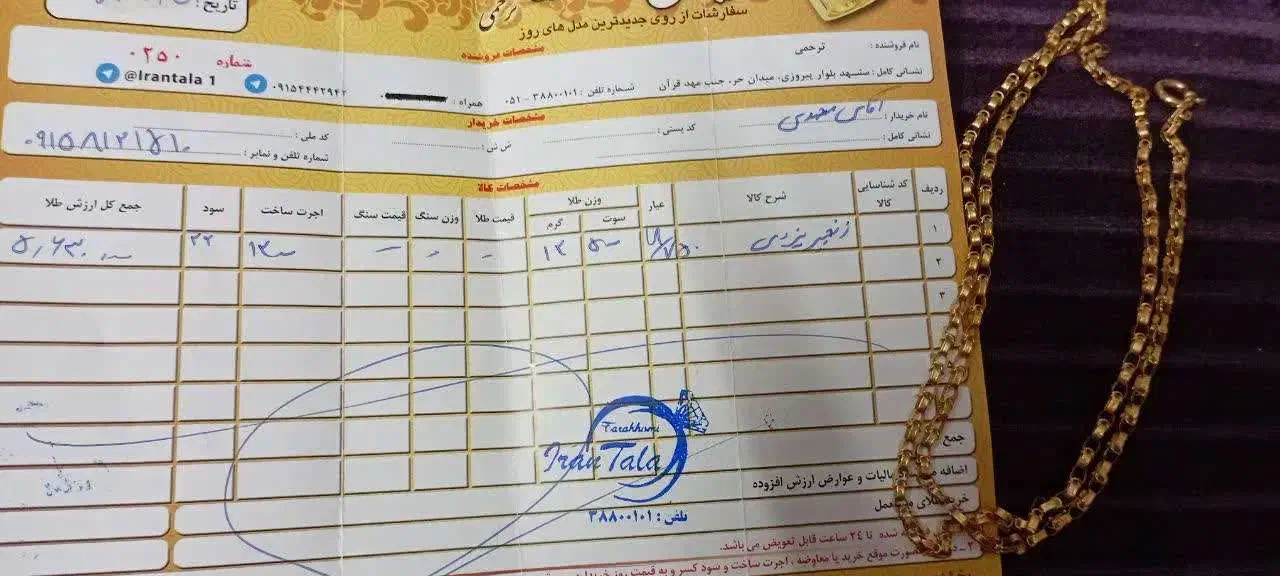 تاریخ :
ترحمی
سفارشات از روی جدیدترین مدل های روز
شماره ۰۲۵۰
@Irantala 1
مشخصات فروشنده
نام فروشنده : ترحمی
نشانی کامل : مشهد بلوار پیروزی، میدان حر، جنب مهد قرآن شماره تلفن : ۳۸۸۰۰۱۰۱ - ۰۵۱ همراه : ۰۹۱۵۴۴۴۲۹۴۲
مشخصات خریدار
نام خریدار : آقای
کد پستی : ش ش : کد ملی :
نشانی کامل :
شماره تلفن و نمابر :
مشخصات کالا
ردیف کد شناسایی کالا شرح کالا عیار وزن طلا سوت گرم قیمت طلا وزن سنگ قیمت سنگ اجرت ساخت سود جمع کل ارزش طلا
۱ زنجیر یزدی ۷۵۰ ۵۰۰ ۱۲
۲
۳
Tarahhomi
Iran Tala
تلفن : ۳۸۸۰۰۱۰۱
جمع
اضافه مالیات و عوارض ارزش افزوده
شده تا ۲۴ ساعت قابل تعویض می باشد.
۲ - صورت موقع خرید یا معاوضه ، اجرت ساخت و سود کسر و به قیمت روز